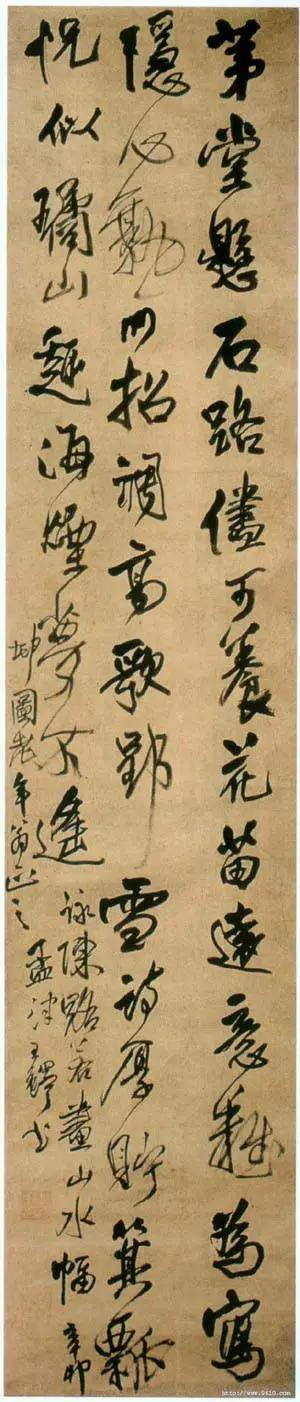 茅堂懸石路儘可養花苗遠意難為寫
隱心勤招調高歌郢雪詩厚貯箕瓢
怳似璚山趣海煙夢不遙
詠陳路若畫山水幅 辛卯
圖老年翁正之 孟津王鐸書
http://www.9610.com